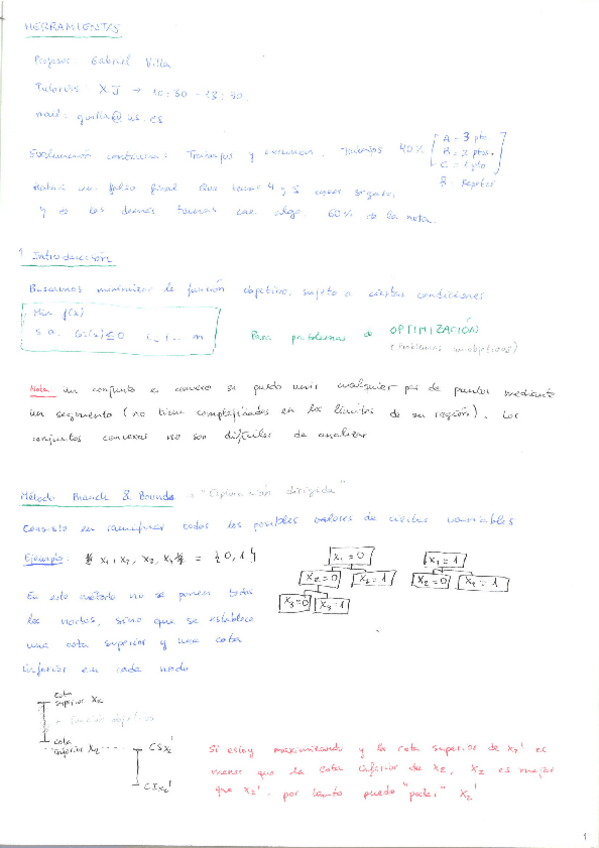 HERRAMIENTAS
Profesor Gabriel Villa
Tutorías X J → 10:30 - 13:30
mail: @us.es
continua: Trabajos y examen. Trabajos 40%
A = 3 pto
B = 2 ptos
C = 1 pto
R = Repetir
un falso final. temas 4 y 5
y de los demás temas cae algo. 60% de la nota.
1 Introducción
Buscaremos minimizar la función objetivo, sujeto a ciertas condiciones
Min f(x)
s.a. Gi(x) ≤ 0 i = 1 ... m
Para problemas de OPTIMIZACIÓN
(Problemas)
Nota: un conjunto es convexo si puedo unir cualquier par de puntos mediante
un segmento (no tiene complejidades en los límites de su región). Los
conjuntos convexos no son difíciles de analizar
Método Branch & Bounds → "Exploración dirigida"
Consiste en ramificar todos los posibles valores de ciertas variables
Ejemplo: = {0,1}
X1=0
X1=1
X2=0
X2=1
X2=0
X2=1
X3=0
X3=1
En este método no se ponen todos
los nodos, sino que se establece
una cota superior y una cota
inferior en cada nodo
cota
superior X2
función objetivo
cota
inferior X2
CSX2'
CIX2'
Si estoy maximizando y la cota superior de X2' es
menor que la cota inferior de X2, X2 es mejor
que X2', por tanto puedo "podar" X2'
1